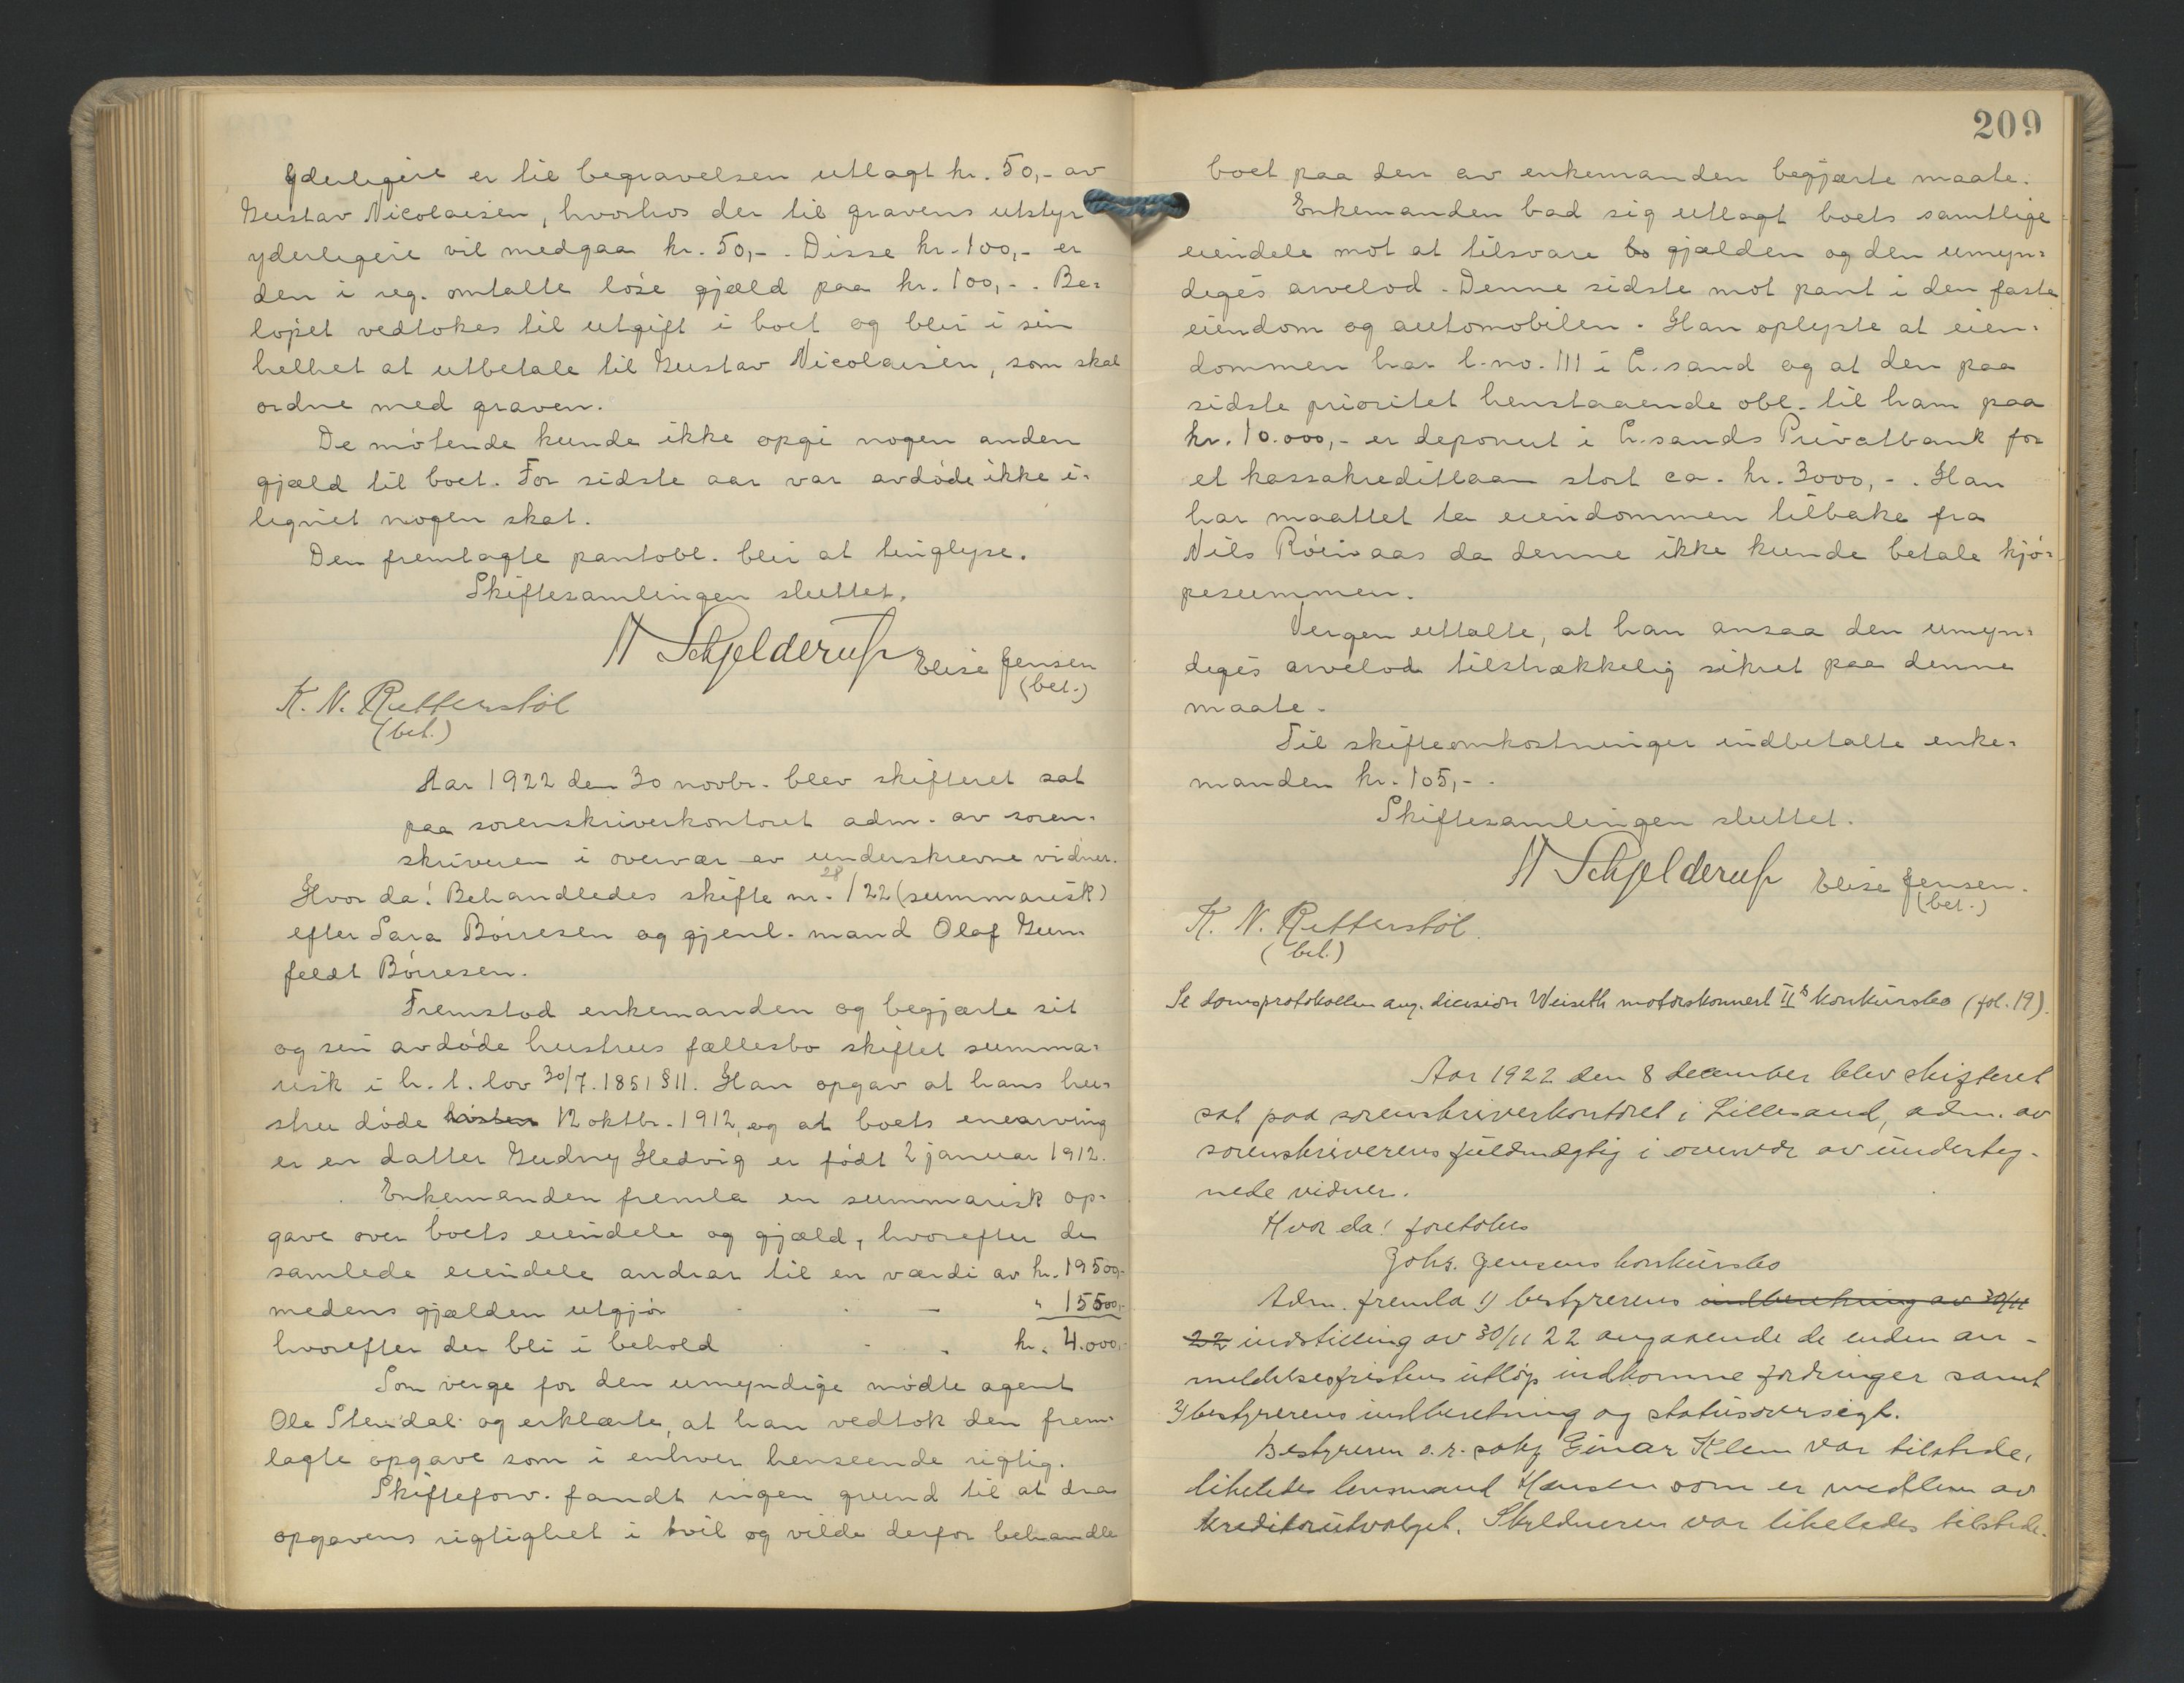 Yderligere er til begravelsen utlagt kr. 50,- av
Gustav Nicolaisen, hvorhos der til gravens utstyr
yderligere vil medgaa kr. 50,-. Disse kr. 100,- er
den i reg. omtalte løse gjæld paa kr. 100,-. Be-
løpet vedtokes til utgift i boet og blir i sin
helhet at utbetale til Gustav Nicolaisen, som skal
ordne med graven.
De møtende kunde ikke opgi nogen anden
gjæld til boet. For sidste aar var avdøde ikke i-
lignet nogen skat.
Den fremlagte pantobl. blir at tinglyse.
Skiftesamlingen sluttet.
N Schjelderup
Elise Jensen
(bet.)
K. N. Retterstøl
(bet.)
Aar 1922 den 30 novbr. blev skifteret sat
paa sorenskriverkontoret adm. av soren-
skriveren i overvær av underskrevne vidner.
Hvor da! Behandledes skifte nr. 28/22 (summarisk)
efter Sara Børresen og gjenl. mand Olaf Gum
feldt Børresen.
Fremstod enkemanden og begjærte sit
og sin avdøde hustrus fællesbo skiftet summa-
risk i h. t. lov 30/7. 1851 § 11. Han opgav at hans hu-
stru døde høsten 12 oktbr. 1912, og at boets enearving
er en datter Gudny Hedvig er født 2 januar 1912.
Enkemanden fremla en summarisk op-
gave over boets eiendele og gjæld, hvorefter de
samlede eiendele andrar til en værdi av kr. 19500,-
medens gjælden utgjør " 15500,-
hvorefter der bli i behold kr. 4.000,-
Som verge for den umyndige mødte agent
Ole Stendal og erklærte, at han vedtok den frem-
lagte opgave som i enhver henseende rigtig.
Skifteforv. fandt ingen grund til at dra
opgavens rigtighet i tvil og vilde derfor behandle
209
boet paa den av enkemanden begjærte maate.
Enkemanden bad sig utlagt boets samtlige
eiendele mot at tilsvare bo gjælden og den umyn-
diges arvelod. Denne sidste mot pant i den faste
eiendom og automobilen. Han oplyste at eien-
dommen har l.no. 111 i L.sand og at den paa
sidste prioritet henstaaende obl. til ham paa
kr. 10.000,- er deponert i L.sands Privatbank for
et kassakreditlaan stort ca. kr. 3000,-. Han
har maattet ta eiendommen tilbake fra
Nils Røinaas da denne ikke kunde betale kjø-
pesummen.
Vergen uttalte, at han ansaa den umyn-
diges arvelod tilstrækkelig sikret paa denne
maate.
Til skifteomkostninger indbetalte enke-
manden kr. 105,-.
Skiftesamlingen sluttet.
N Schjelderup
Elise Jensen.
(bet.)
K. N. Retterstøl.
(bet.)
Se domsprotokollen ang. decision Weiseth motorskonnert IIs konkursbo (fol. 19).
Aar 1922 den 8 december blev skifteret
sat paa sorenskriverkontoret i Lillesand, adm. av
sorenskriverens fuldmægtig i overvær av underteg-
nede vidner.
Hvor da! foretokes
Johs. Jensens konkursbo
Adm. fremla 1) bestyrerens indberetning av 30/11
22 indstilling av 30/11 22 angaaende de inden an-
meldelsesfristens utløp indkomne fordringer samt
2) bestyrerens indberetning og statusoversigt.
Bestyreren o.r. sakf Einar Klem var tilstede,
likeledes lensmand Hansen som er medlem av
kreditorutvalget. Skyldneren var likeledes tilstede.